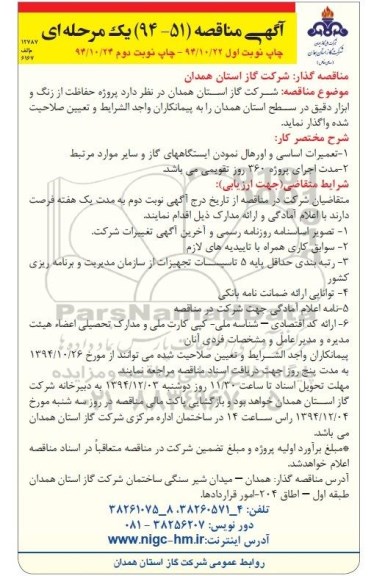 آگهی مناقصه (۵۱- ۹۴) یک مرحله ای
چاپ نوبت اول ۹۴/۱۰/۲۲ - چاپ نوبت دوم ۹۴/۱۰/۲۴
۱۲۷۸۷
م الف
۶۱۶۷
مناقصه گذار: شرکت گاز استان همدان
موضوع مناقصه: شرکت گاز استان همدان در نظر دارد پروژه حفاظت از زنگ و
ابزار دقیق در سطح استان همدان را به پیمانکاران واجد الشرایط و تعیین صلاحیت
شده واگذار نماید.
شرح مختصر کار:
۱-تعمیرات اساسی و اورهال نمودن ایستگاههای گاز و سایر موارد مرتبط
۲-مدت اجرای پروژه ۳۶۰ روز تقویمی می باشد.
شرایط متقاضی(جهت ارزیابی):
متقاضیان شرکت در مناقصه از تاریخ درج آگهی نوبت دوم به مدت یک هفته فرصت
دارند با اعلام آمادگی و ارائه مدارک ذیل اقدام نمایند.
۱- تصویر اساسنامه روزنامه رسمی و آخرین آگهی تغییرات شرکت.
۲- سوابق کاری همراه با تاییدیه های لازم
۳- رتبه بندی حداقل پایه ۵ تاسیسات تجهیزات از سازمان مدیریت و برنامه ریزی
کشور
۴- توانایی ارائه ضمانت نامه بانکی
۵-نامه اعلام آمادگی جهت شرکت در مناقصه
۶-ارائه کد اقتصادی – شناسه ملی- کپی کارت ملی و مدارک تحصیلی اعضاء هیئت
مدیره و مدیر عامل و مشخصات فردی آنان
پیمانکاران واجد الشرایط و تعیین صلاحیت شده می توانند از مورخ ۱۳۹۴/۱۰/۲۶
به مدت پنج روز جهت دریافت اسناد مناقصه مراجعه نمایند.
مهلت تحویل اسناد تا ساعت ۱۱/۳۰ روز دوشنبه ۱۳۹۴/۱۲/۰۳ به دبیرخانه شرکت
گاز استان همدان خواهد بود و بازگشایی پاکت مالی مناقصه در روز سه شنبه مورخ
۱۳۹۴/۱۲/۰۴ راس ساعت ۱۴ در ساختمان اداره مرکزی شرکت گاز استان همدان
می باشد.
*مبلغ برآورد اولیه پروژه و مبلغ تضمین شرکت در مناقصه متعاقباً در اسناد مناقصه
اعلام خواهدشد.
آدرس مناقصه گذار: همدان – میدان شیر سنگی ساختمان شرکت گاز استان همدان
طبقه اول – اطاق ۲۰۴-امور قراردادها.
تلفن: ۴_۳۸۲۶۰۵۷۱، ۸_۳۸۲۶۱۰۷۵
دور نویس: ۳۸۲۵۶۲۰۷ - ۰۸۱
آدرس اینترنت:www.nigc-hm.ir
روابط عمومی شرکت گاز استان همدان